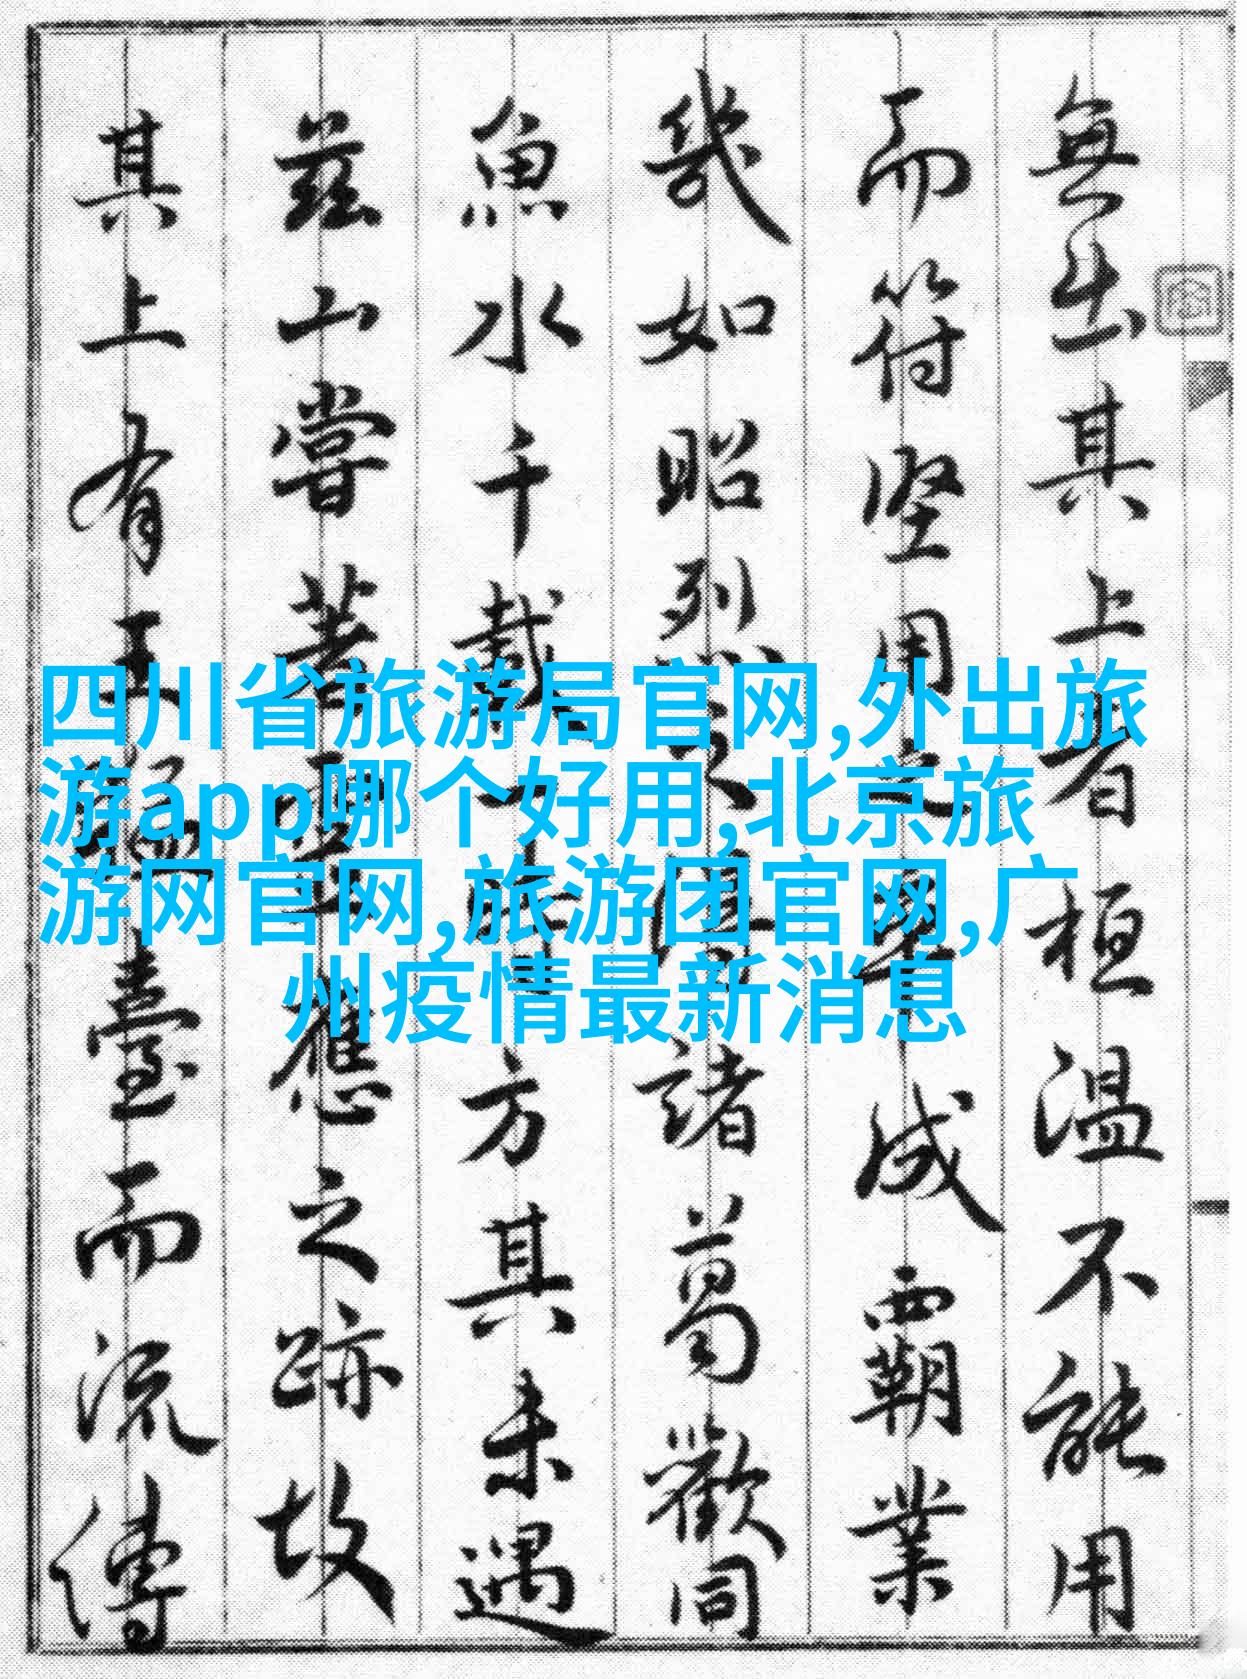 無出其上者桓溫不能用
而符堅用之成覇業
幾如昭烈之諸葛歡同
魚水千載一時方其未遇
茲山嘗著應之跡故
其上有王猛臺而流傳
四川省旅游局官网,外出旅
游app哪个好用,北京旅
游网官网,旅游团官网,广
州疫情最新消息